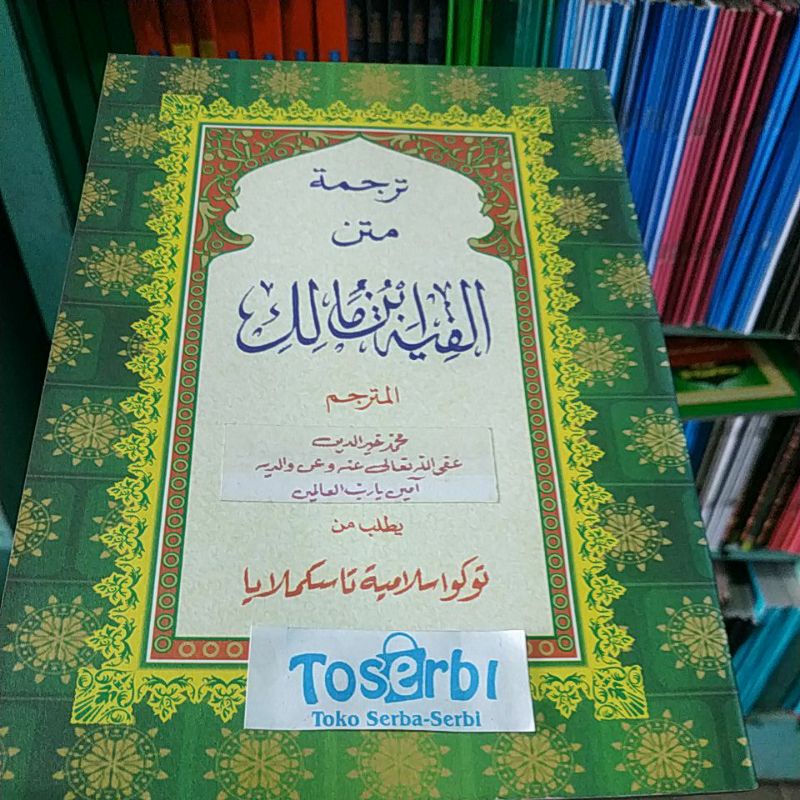 ترجمة
متن
الفية ابن مُالِك
المترجم
محمد خير الدين
عفى الله تعالى عنه وعن والديه
آمين يا رب العالمين
يطلب من
توكو اسلامية تاسكملايا
Toserbi
Toko Serba-Serbi